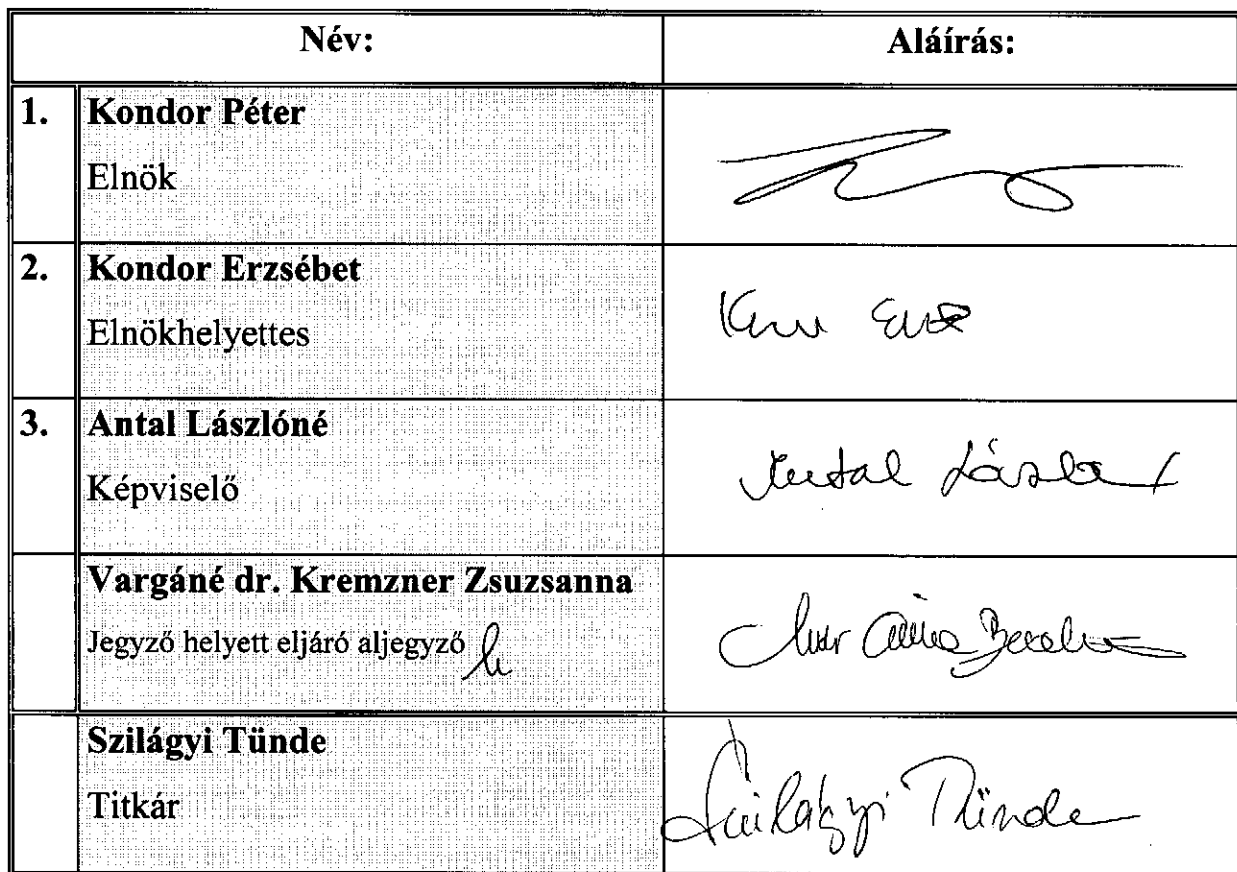 Név: Aláírás:
1. Kondor Péter
Elnök
2. Kondor Erzsébet
Elnökhelyettes
3. Antal Lászlóné
Képviselő
Antal
Vargáné dr. Kremzner Zsuzsanna
Jegyző helyett eljáró aljegyző
h
Szilágyi Tünde
Titkár
Szilágyi Tünde